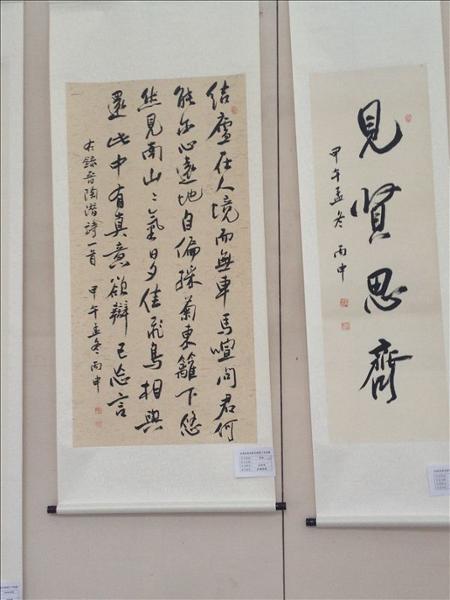 見賢思齊
甲午孟冬 丙申
結廬在人境而無車馬喧問君何
能尔心遠地自偏採菊東籬下悠
然見南山〻氣日夕佳飛鳥相與
還此中有真意欲辯已忘言
右錄晉陶潛詩一首 甲午孟冬丙申